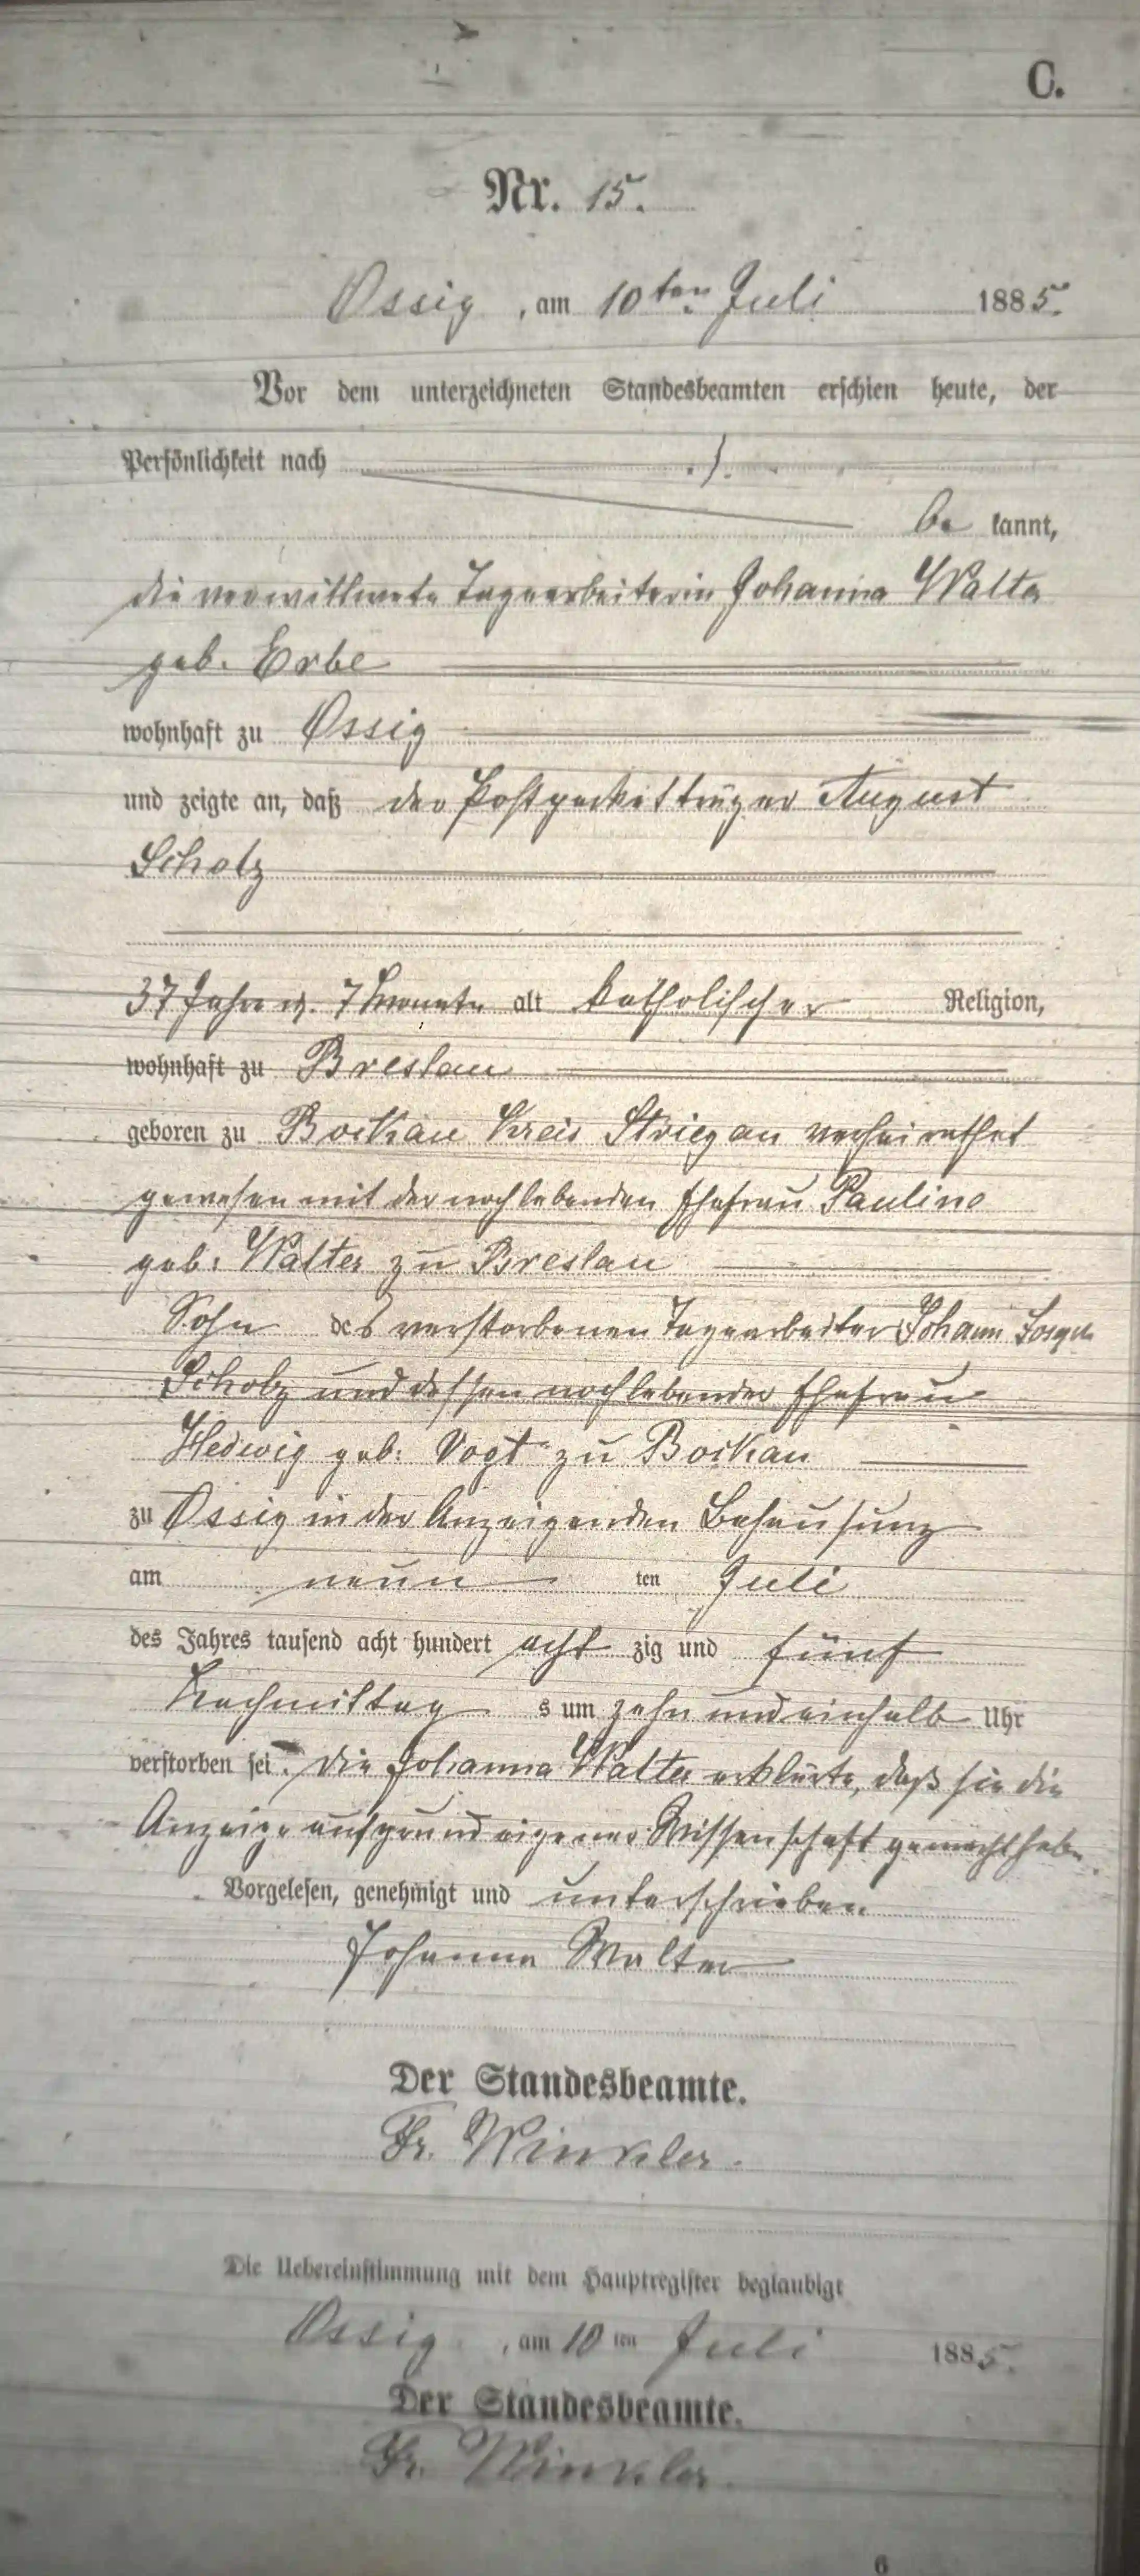 C.
Nr. 15.
Ossig, am 10ten Juli 1885.
Vor dem unterzeichneten Standesbeamten erschien heute, der
Persönlichkeit nach ./.
be kannt,
die verwittwete Tagearbeiterin Johanna Walter
geb. Erbe
wohnhaft zu Ossig
und zeigte an, daß der Postpacketträger August
Scholz
37 Jahre u. 7 Monate alt katholischer Religion,
wohnhaft zu Breslau
geboren zu Bockau Kreis Striegau verheirathet
gewesen mit der noch lebenden Ehefrau Pauline
geb: Walter zu Breslau
Sohn des verstorbenen Tagearbeiter Johann
Scholz und dessen noch lebender Ehefrau
Hedwig geb: Vogt zu Bockau
zu Ossig in der Anzeigenden Behausung
am neun ten Juli
des Jahres tausend acht hundert acht zig und fünf
Nachmittag s um zehn und einhalb Uhr
verstorben sei. Die Johanna Walter erklärte, daß sie die
Anzeige aufgrund eigener Wissenschaft gemacht habe.
Vorgelesen, genehmigt und unterschrieben
Johanna Walter
Der Standesbeamte.
Fr. Winkler.
Die Uebereinstimmung mit dem Hauptregister beglaubigt
Ossig, am 10 ten Juli 1885.
Der Standesbeamte.
Fr. Winkler.
6